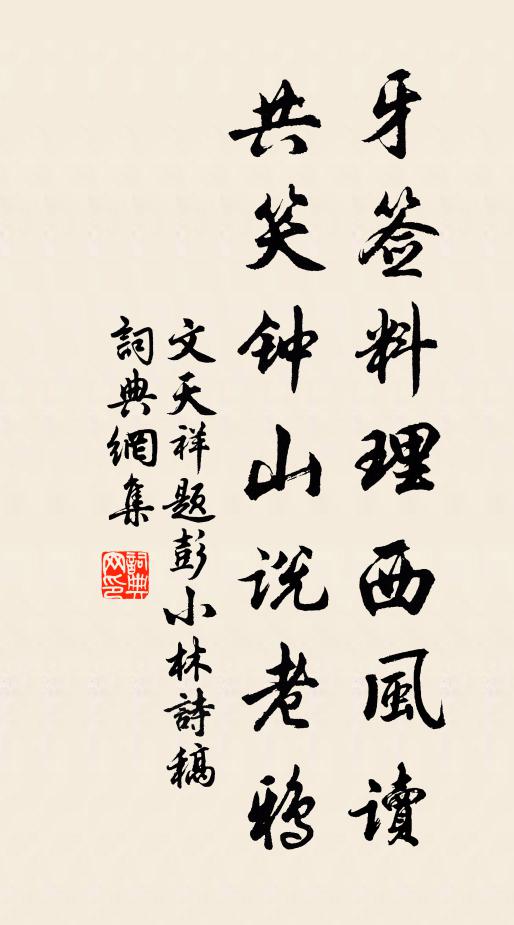 牙签料理西風讀
共笑钟山说老鸦
文天祥題彭小林詩稿
詞典網集
詞典
网印